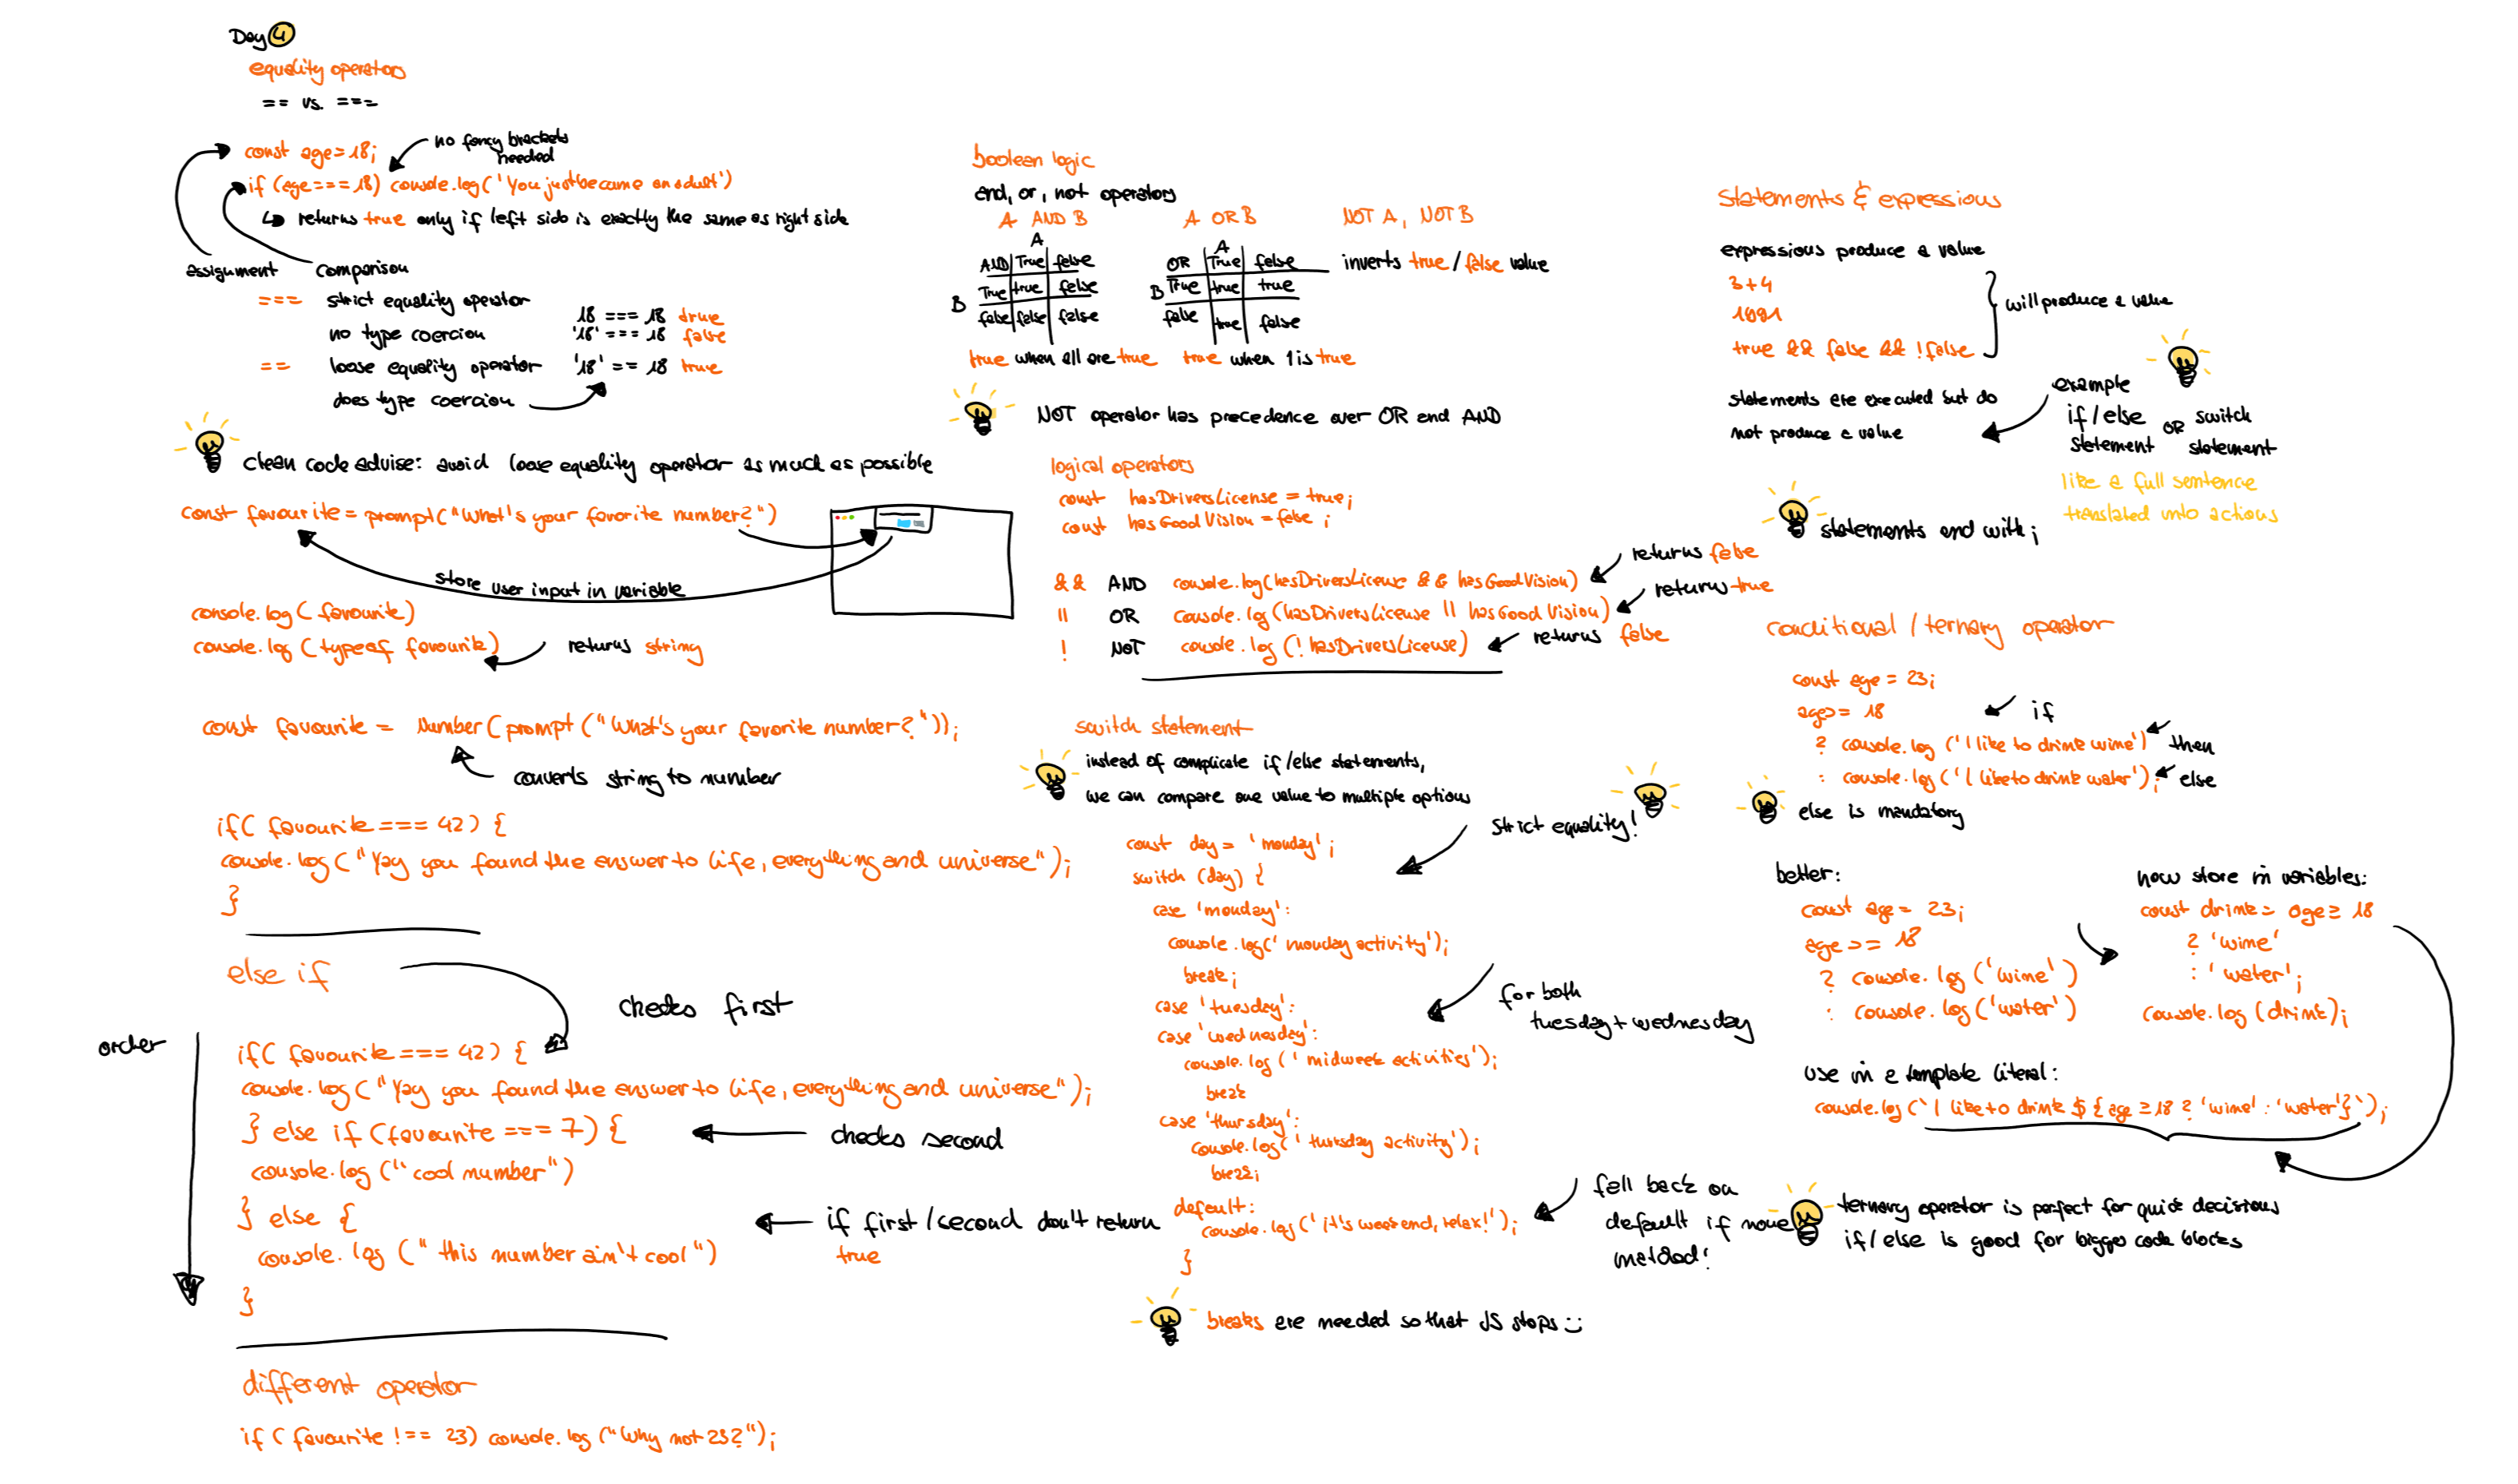 Day 4
equality operators
== vs. ===
const age=18;
no fancy brackets
needed
if (age===18) console.log('You just became an adult')
↳ returns true only if left side is exactly the same as right side
assignment comparison
=== strict equality operator
no type coercion
18 === 18 true
'18' === 18 false
== loose equality operator '18' == 18 true
does type coercion
clean code advise: avoid loose equality operator as much as possible
const favourite = prompt("What's your favorite number?")
store user input in variable
console.log(favourite)
console.log(typeof favourite) returns string
const favourite = Number(prompt("What's your favorite number?"));
converts string to number
if( favourite === 42) {
console.log("Yay you found the answer to life, everything and universe");
}
else if
checks first
order
if( favourite === 42) {
console.log("Yay you found the answer to life, everything and universe");
} else if (favourite === 7) {
checks second
console.log("cool number")
} else {
if first/second don't return
true
console.log("this number ain't cool")
}
different operator
if (favourite !== 23) console.log("Why not 23?");
boolean logic
and, or, not operators
A AND B A OR B NOT A, NOT B
A A
AND True false OR True false inverts true / false value
B True true false B True true true
false false false false true false
true when all are true true when 1 is true
NOT operator has precedence over OR and AND
logical operators
const hasDriversLicense = true;
const hasGoodVision = false;
&& AND console.log(hasDriversLicense && hasGoodVision) returns false
|| OR console.log(hasDriversLicense || hasGoodVision) returns true
! NOT console.log(!hasDriversLicense) returns false
switch statement
instead of complicate if/else statements,
we can compare one value to multiple options
strict equality!
const day = 'monday';
switch (day) {
case 'monday':
console.log('monday activity');
break;
case 'tuesday':
case 'wednesday':
for both
tuesday+wednesday
console.log('midweek activities');
break
case 'thursday':
console.log('thursday activity');
break;
default:
console.log('it's weekend, relax!');
}
fall back on
default if none
matched!
breaks are needed so that JS stops :)
statements & expressions
expressions produce a value
3+4
1991
true && false && !false
will produce a value
statements are executed but do
not produce a value
example
if/else OR switch
statement statement
like a full sentence
translated into actions
statements end with ;
conditional / ternary operator
const age = 23;
age >= 18 if
? console.log('I like to drink wine') then
: console.log('I like to drink water'); else
else is mandatory
better:
const age = 23;
age >= 18
? console.log('wine')
: console.log('water')
now store in variables:
const drink = age ≥ 18
? 'wine'
: 'water';
console.log(drink);
use in a template literal:
console.log(`I like to drink ${age ≥ 18 ? 'wine' : 'water'}`);
ternary operator is perfect for quick decisions
if/else is good for bigger code blocks